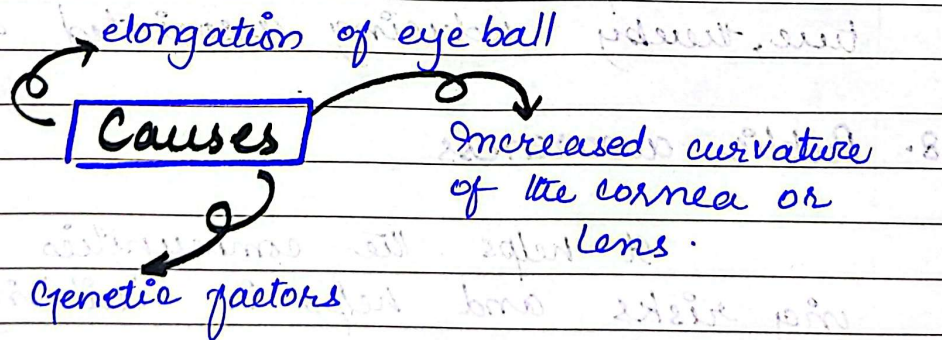 elongation of eye ball
Causes
Increased curvature
of the cornea or
lens.
Genetic factors